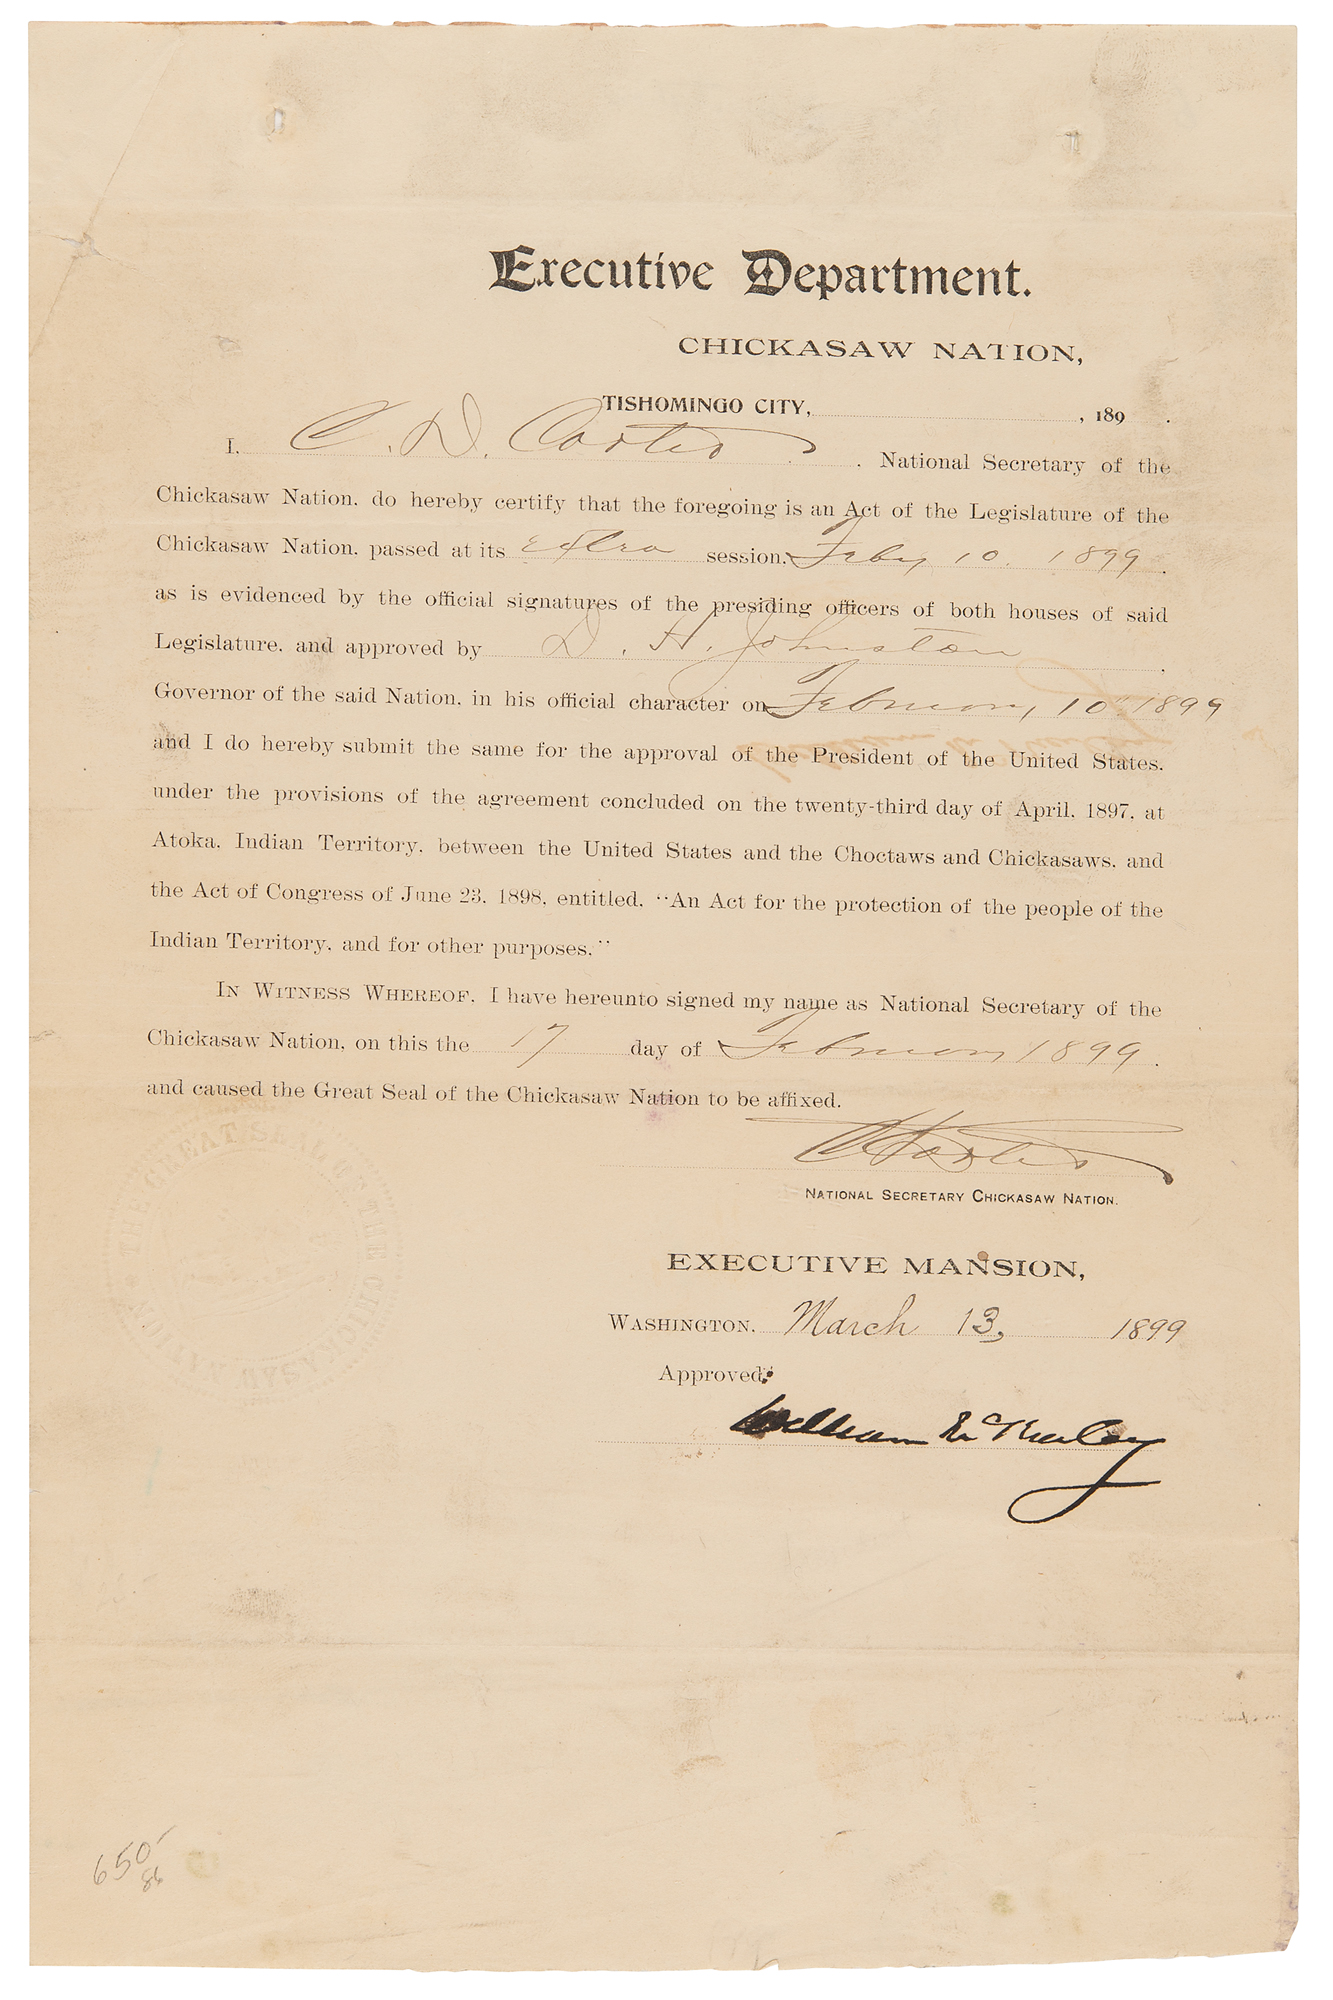 Executive Department.
CHICKASAW NATION,
TISHOMINGO CITY, , 189 .
I, C. D. Carter , National Secretary of the
Chickasaw Nation, do hereby certify that the foregoing is an Act of the Legislature of the
Chickasaw Nation, passed at its extra session, Feby 10. 1899.
as is evidenced by the official signatures of the presiding officers of both houses of said
Legislature, and approved by D. H. Johnston .
Governor of the said Nation, in his official character on February 10" 1899
and I do hereby submit the same for the approval of the President of the United States,
under the provisions of the agreement concluded on the twenty-third day of April, 1897, at
Atoka, Indian Territory, between the United States and the Choctaws and Chickasaws, and
the Act of Congress of June 23, 1898, entitled, "An Act for the protection of the people of the
Indian Territory, and for other purposes."
IN WITNESS WHEREOF, I have hereunto signed my name as National Secretary of the
Chickasaw Nation, on this the 17 day of February 1899.
and caused the Great Seal of the Chickasaw Nation to be affixed.
THE GREAT SEAL OF THE CHICKASAW NATION
C D Carter
NATIONAL SECRETARY CHICKASAW NATION.
EXECUTIVE MANSION,
WASHINGTON, March 13, 1899
Approved:
William McKinley
650-
86